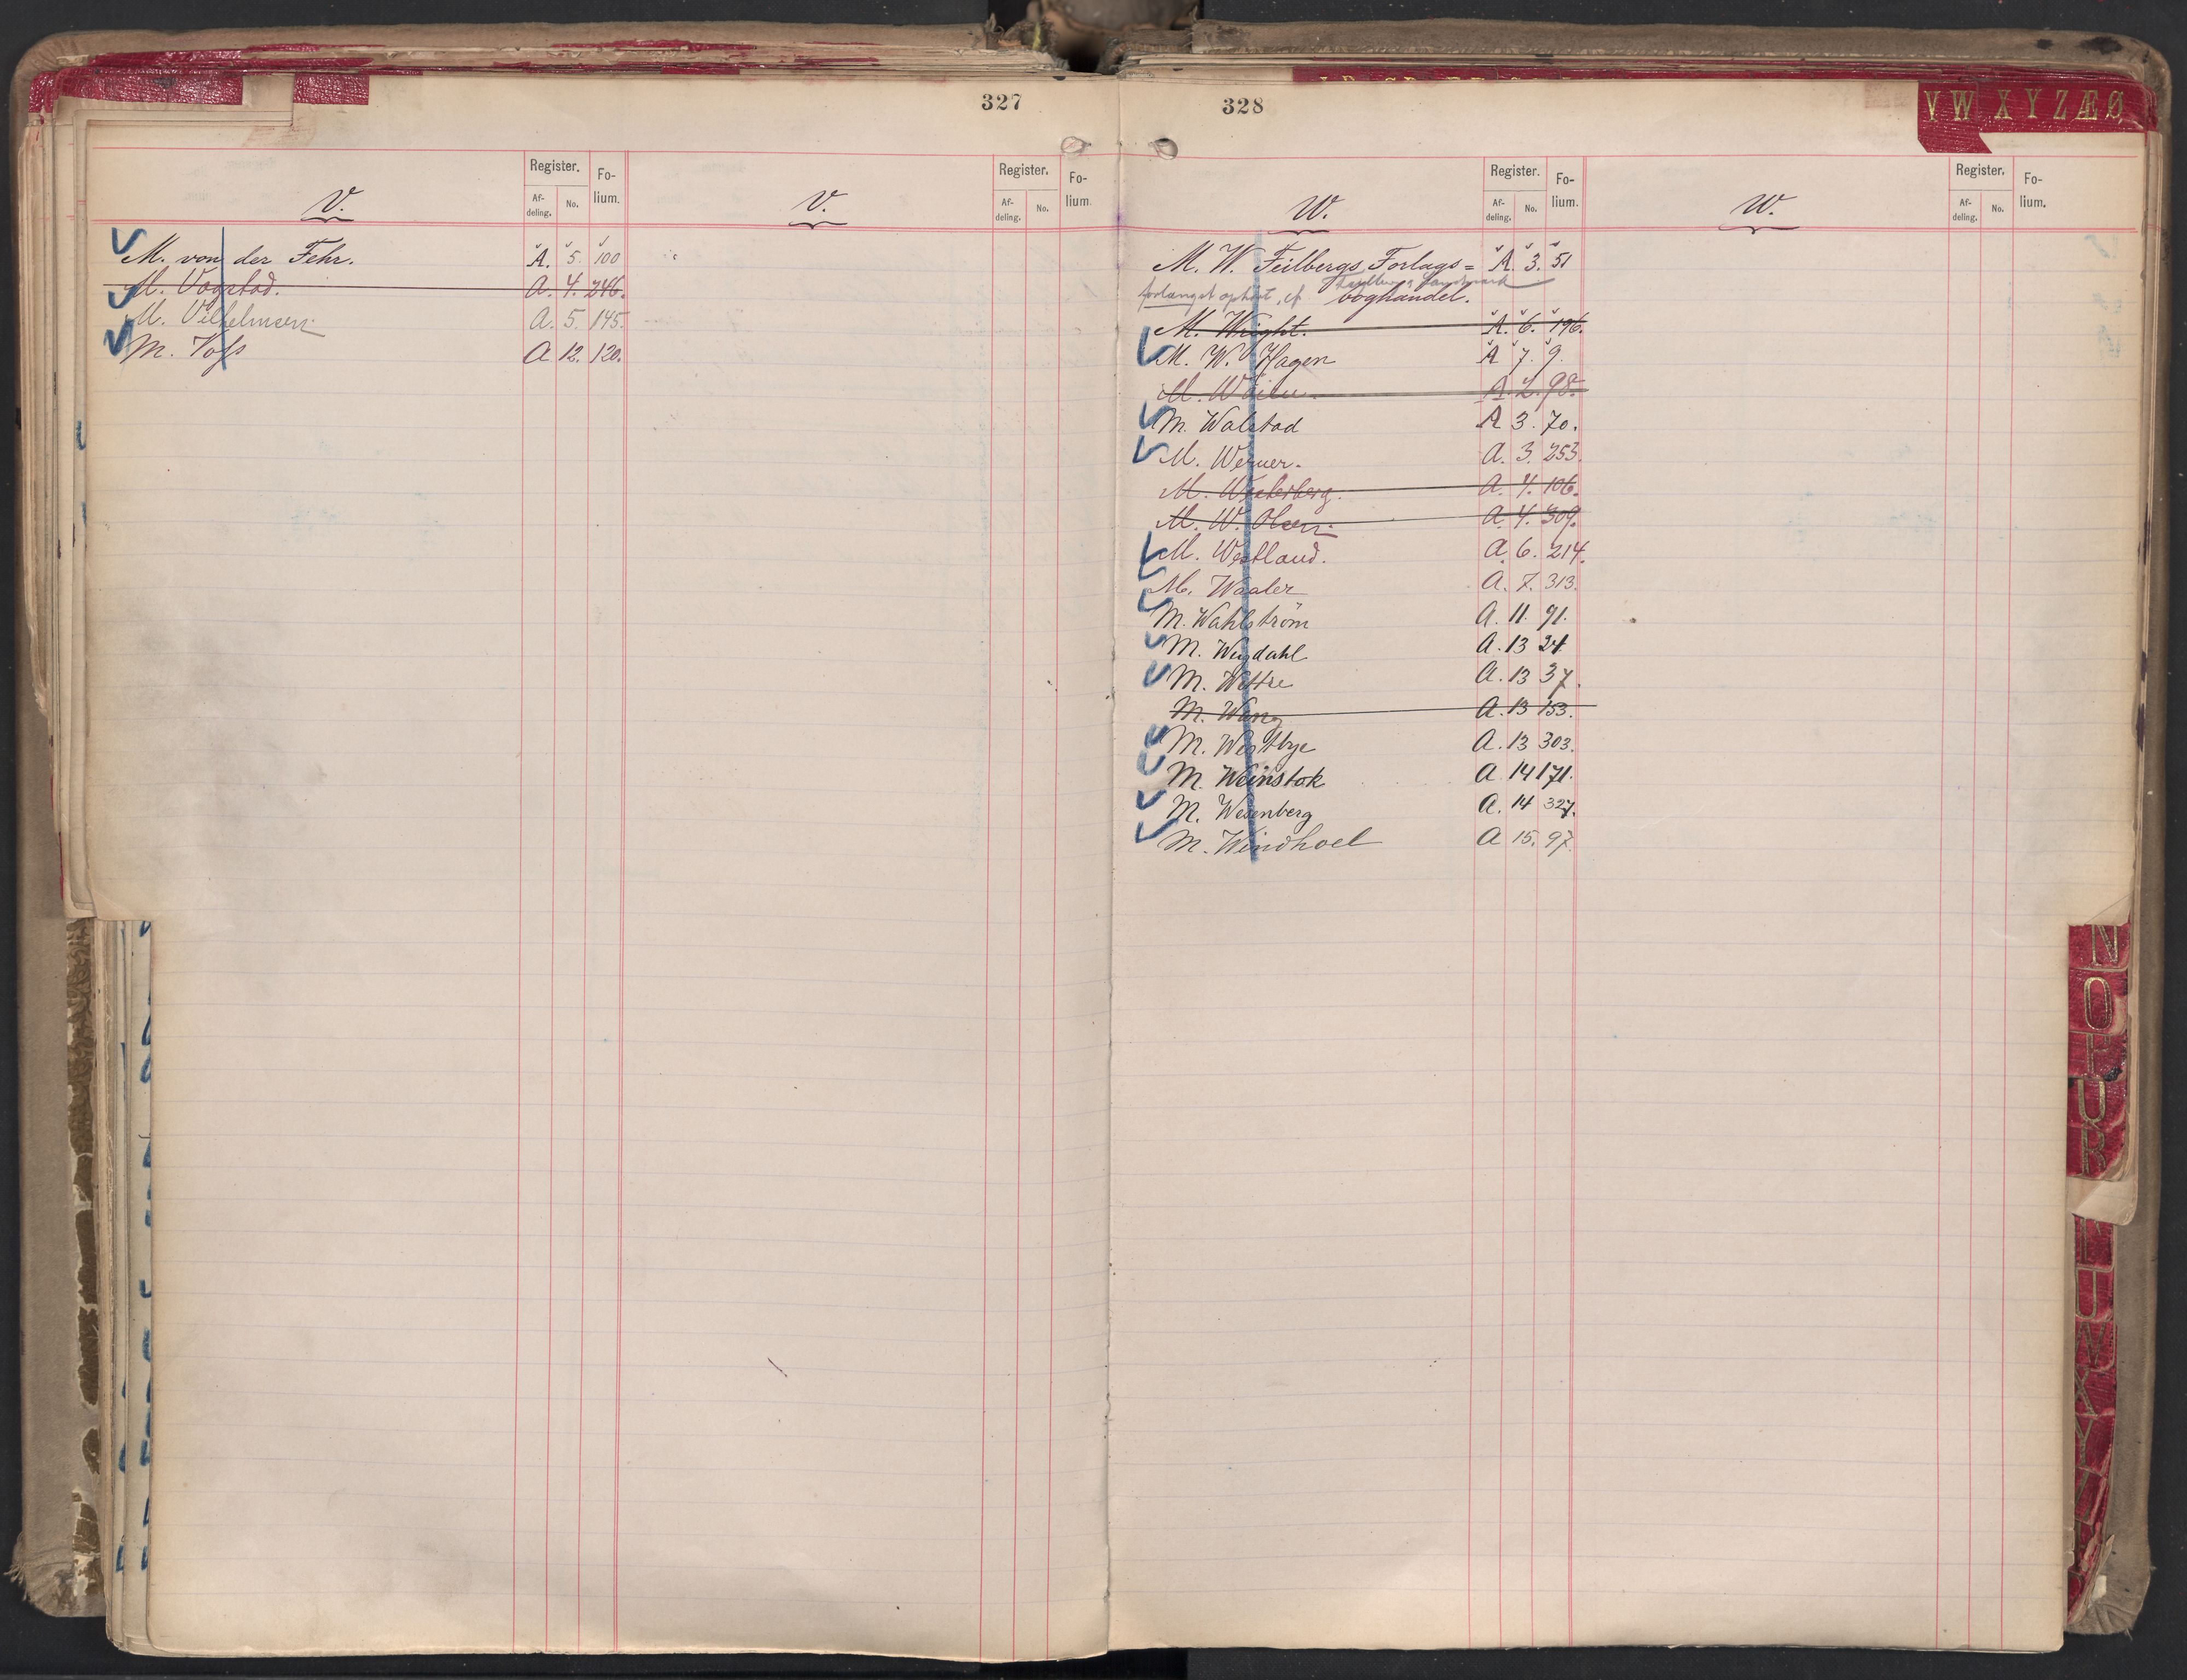 327
V.
Register.
Af-
deling.
No.
Fo-
lium.
V.
Register.
Af-
deling.
No.
Fo-
lium.
M. von der Fehr. A. 5. 100
M. Vogstad. A. 4. 246.
M. Vilhelmsen. A. 5. 145.
M. Vofs A. 12. 120.
328
V W X Y Z Æ Ø
W.
Register.
Af-
deling.
No.
Fo-
lium.
W.
Register.
Af-
deling.
No.
Fo-
lium.
M. W. Feilbergs Forlags= A. 3. 51
forlængst ophørt, cf Feilberg & Landmark
boghandel.
M. Wright. A. 6. 196.
M. W. Hagen A 7. 9.
M. A. 2. 98.
M. Walstad A 3. 70.
M. Werner. A. 3. 253.
M. Westerberg. A. 4. 106.
M. W. Olsen. A. 4. 309.
M. Westland. A. 6. 214.
M. Waaler A. 7. 313.
M. Wahlström A. 11. 91.
M. Weydahl A. 13 24
M. Wettre A. 13 37.
M. Wang A. 13 153.
M. Westbye A. 13 303.
M. Weinstok A 14 171.
M. Wesenberg A. 14 327.
M. Windhoel A 15. 97.
N
O
P
R
T
U
V
X
Y